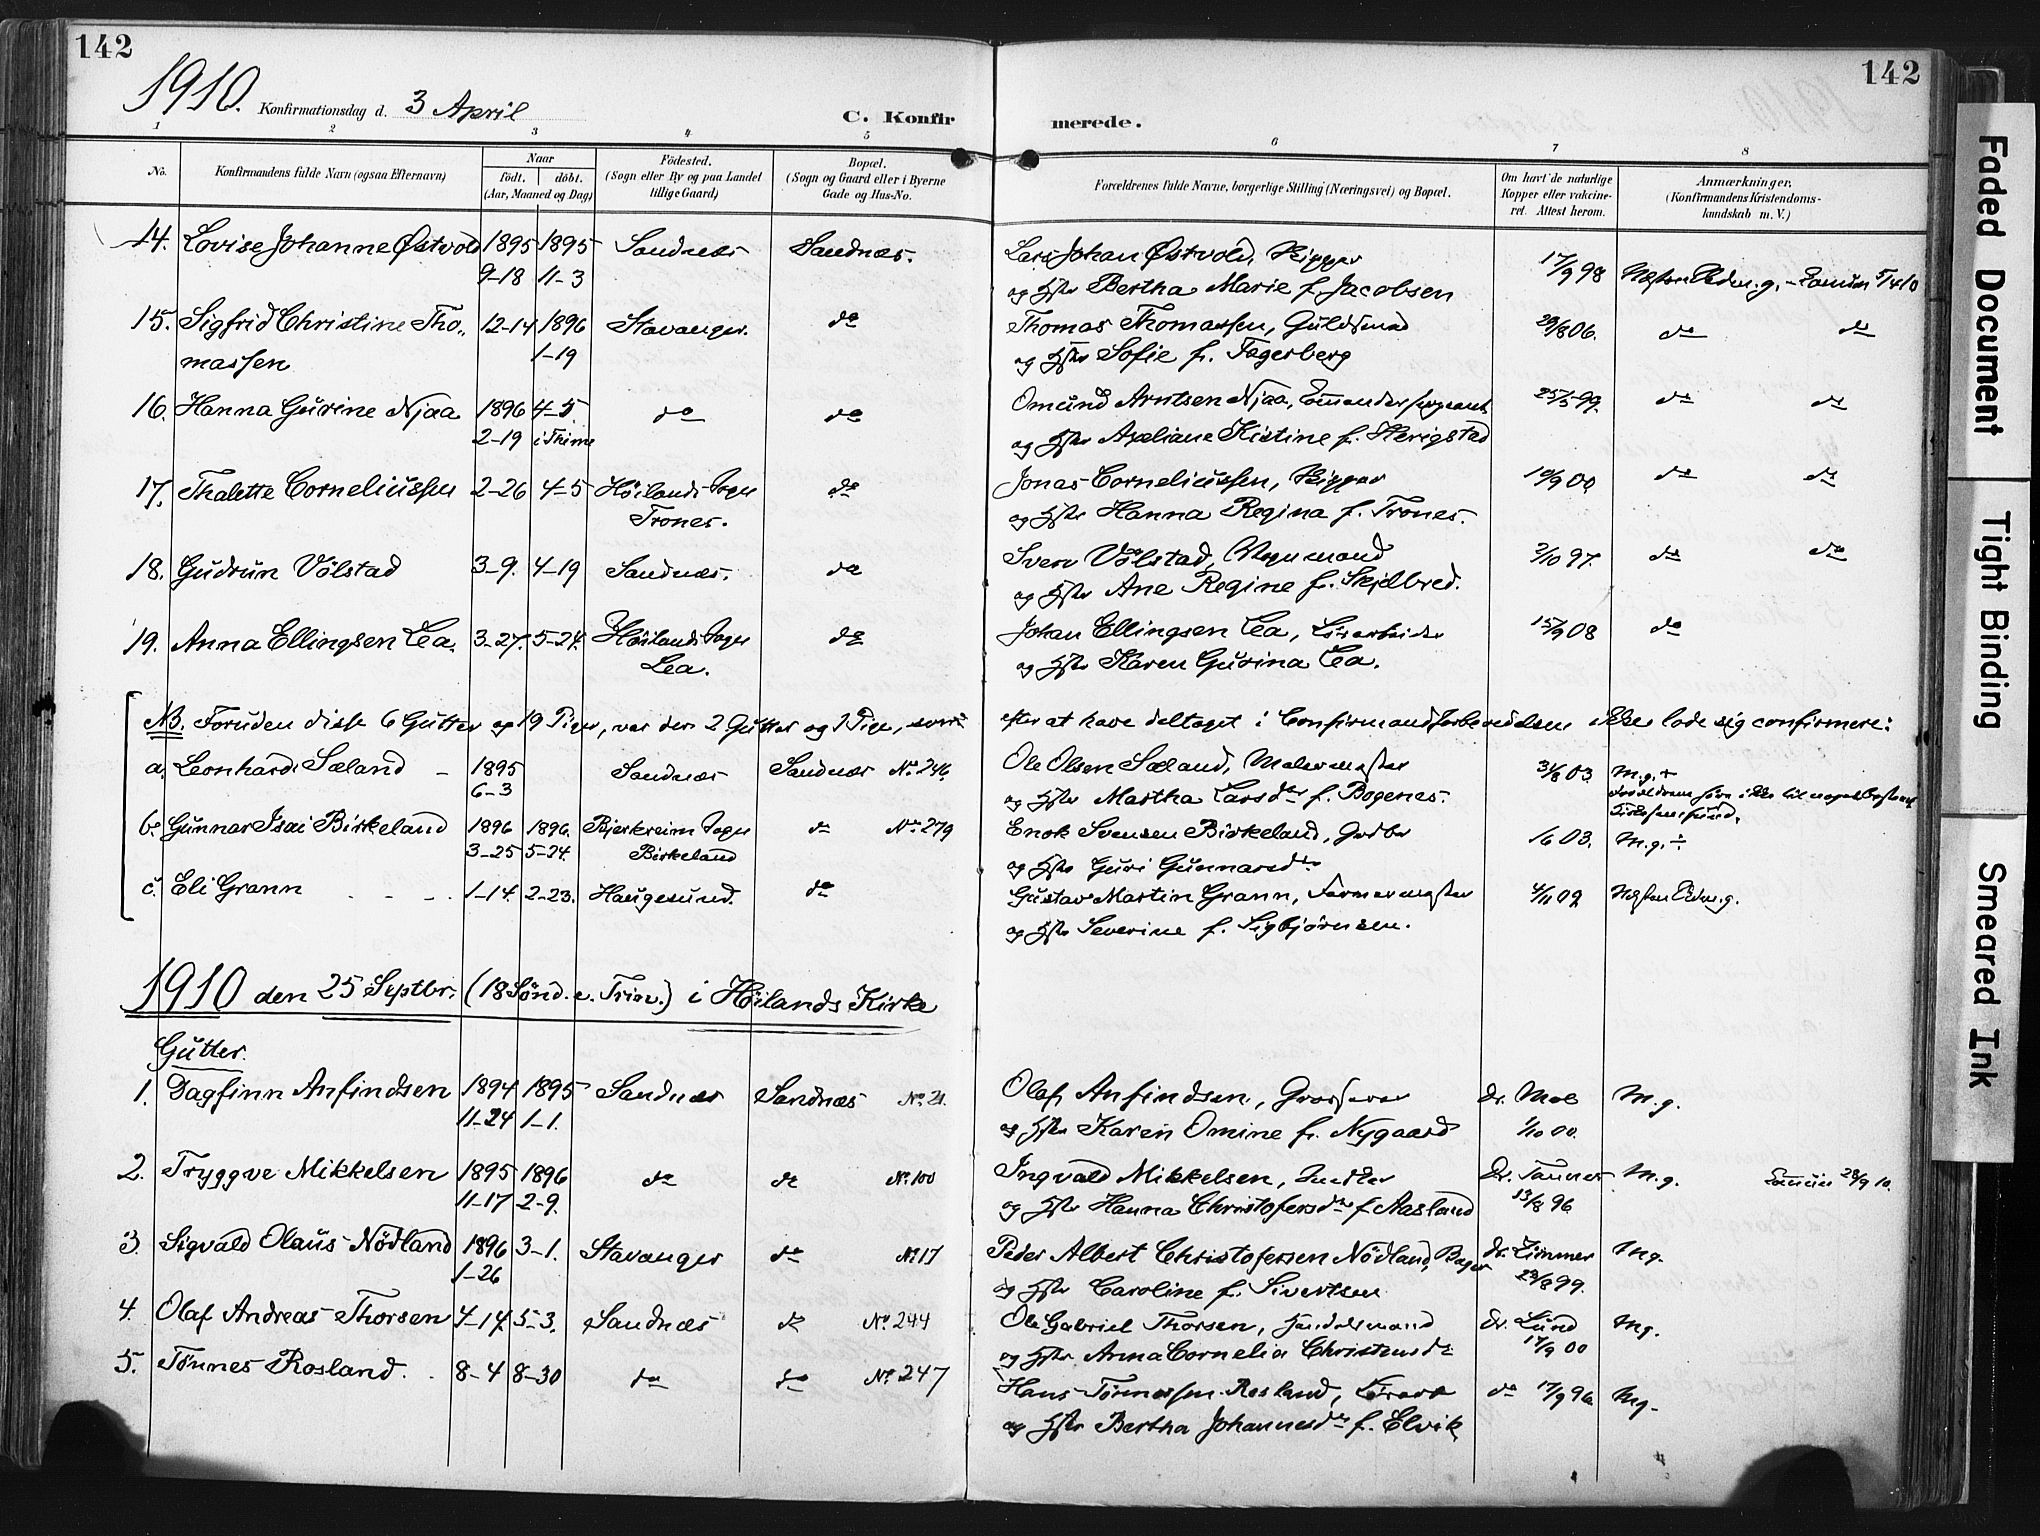 142
142
1910. Konfirmationsdag d. 3 April
C. Konfirmerede.
1 2 3 4 5 6 7 8
No.
Konfirmandens fulde Navn (ogsaa Efternavn)
Naar
födt. döbt.
(Aar, Maaned og Dag)
Födested.
(Sogn eller By og paa Landet
tillige Gaard)
Bopæl.
(Sogn og Gaard eller i Byerne
Gade og Hus-No.
Forældrenes fulde Navne, borgerlige Stilling (Næringsvei) og Bopæl.
Om havt de naturlige
Kopper eller vaccine-
ret. Attest herom.
Anmærkninger.
(Konfirmandens Kristendoms-
kundskab m. V.)
14. Lovise Johanne Østvold 1895 1895 Sandnæs Sandnæs. Lars Johan Østvold, Skipper 17/9 98
9-18 11-3 og Hstr Bertha Marie f. Jacobsen
15. Sigfrid Christine Tho- 12-14 1896 Stavanger. do Thomas Thomassen, Guldsmed 06. do do
massen 1-19 og Hstr Sofie f. Fagerberg
16. Hanna Gurine Njaa 1896 4-5 do do Omund Arntsen Njaa, 99. do do
2-19 i Thime og Hstr Axeliane Kistine f. Herigstad
17. Thalette Corneliussen 2-26 4-5 Höilands Sogn do Jonas Corneliussen, Skipper 00. do do
Trones. og Hstr Hanna Regina f. Trones.
18. Gudrun Völstad 3-9. 4-19 Sandnæs. do Sven Völstad, Vognmand 2/10 97. do do
og Hstr Ane Regine f. Skjelbred.
19. Anna Ellingsen Lea. 3-27. 5-24. Höilands Sogn do Johan Ellingsen Lea, 15/9 08 do
Lea. og Hstr Karen Gurina Lea.
NB. Foruden disse 6 Gutter og 19 Piger, var der 2 Gutter og 1 Pige, som efter at have deltaget i Confirmandforberedelsen ikke lode sig confirmere:
a. Leonhard Sæland 1895 Sandnæs Sandnæs No. 246. Ole Olsen Sæland, Malermester 03. M.g.+
6-3 og Hstr Martha Larsdtr f. Bogenes.
b. Gunnar Isai Birkeland 1896 1896. Bjerkreim Sogn do No. 279 Enok Svensen Birkeland, Gardbr 03. M.g. ÷
3-25 5-24. Birkeland og Hstr Guri Gunnarsdtr
c. Eli Grann 1-14. 2-23. Haugesund. do Gustav Martin Grann, Farvermester 4/11 02 Næsten Udm.g.
og Hstr Severine f. Sigbjørnsen.
1910 den 25 Septbr. (18 Sönd. e. Trin.) i Höilands Kirke
Gutter.
1. Dagfinn Anfindsen 1894 1895 Sandnæs Sandnæs No. 21. Olaf Anfindsen, Grosserer dr. Moe M.g.
11-24 1-1. og Hstr Karen Omine f. Nygaard 1/10 00.
2. Tryggve Mikkelsen 1895 1896 do do No. 100 Ingvald Mikkelsen, Snedker Dr. M.g. 28/9 10.
11-17 2-9. og Hstr Hanna Christofersdtr f. Aasland 13/8 96
3. Sigvald Olaus Nödland 1896 3-1. Stavanger do No. 17 Peder Albert Christofersen Nödland, Bager dr. Zimmer Mg.
1-26 og Hstr Caroline f. Sivertsen 99.
4. Olaf Andreas Thorsen 4-14. 5-3. Sandnæs do No. 244 Ole Gabriel Thorsen, Handelsmand dr. Lund Mg.
og Hstr Anna Cornelia Christensdtr 17/9 00
5. Tönnes Rosland. 8-4 8-30 do do No. 247 Hans Tönnessen Rosland, do 17/9 96 Mg.
og Hstr Bertha Johannesdtr f. Elvik
Faded Document
Tight Binding
Smeared Ink